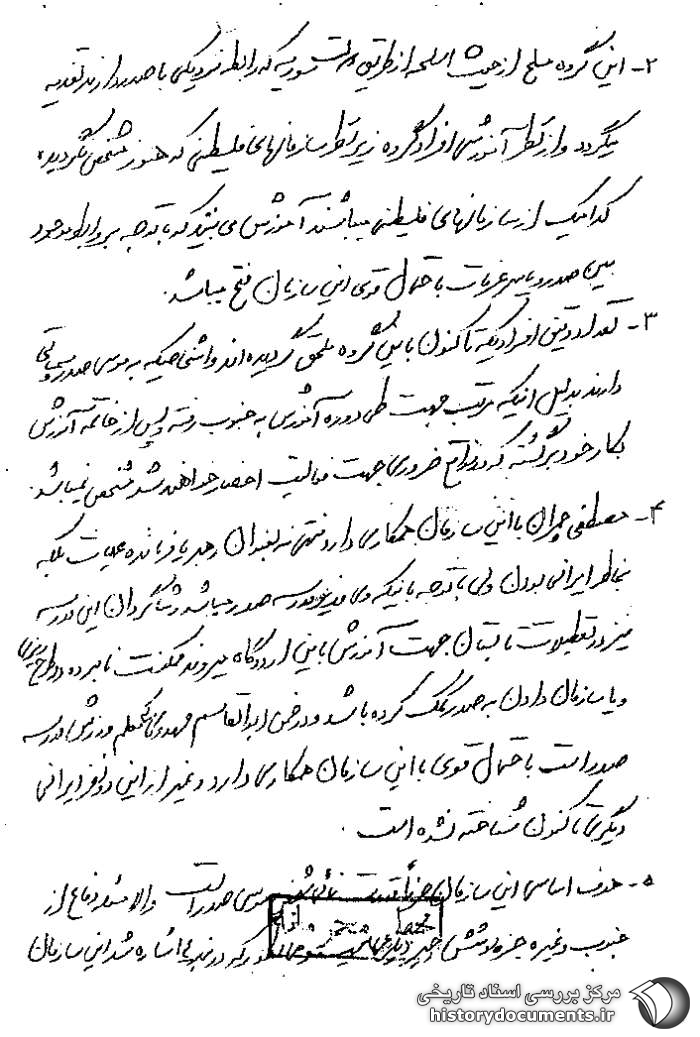 ۲- این گروه مسلح از حیث اسلحه از طریق دولت سوریه که رابطه نزدیکی با صدر دارند تغذیه
میگردد و از نظر آموزش افراد گروه زیر نظر سازمانهای فلسطینی که هنوز مشخص نگردیده
کدامیک از سازمانهای فلسطینی میباشند آموزش می بینند که با توجه بروابط موجود
بین صدر و یاسر عرفات باحتمال قوی این سازمان فتح میباشد.
۳- تعداد دقیق افرادیکه تاکنون باین گروه ملحق گردیده اند و اشخاصیکه به موسی صدر وسمپاتی
دارند بدلیل اینکه مرتب جهت طی دوره آموزش به جنوب رفته و پس از خاتمه آموزش
بکار خود برگشته که در مواقع ضروری جهت فعالیت احضار خواهند شد مشخص نمیباشد.
۴- مصطفی چمران با این سازمان همکاری دارد منتهی نه بعنوان رهبر یا فرمانده عملیات بلکه
بخاطر ایرانی بودن ولی با توجه باینکه وی مدیر مدرسه صدر میباشد و شاگردان این مدرسه
نیز در تعطیلات تابستان جهت آموزش باین اردوگاه میروند ممکنست نامبرده در طرح ریزی
و یا سازمان دادن به صدر کمک کرده باشد و در ضمن ابوالقاسم مهدوی معلم ورزش مدرسه
صدر است باحتمال قوی با این سازمان همکاری دارد و غیر از این دو نفر ایرانی
دیگری تاکنون شناخته نشده است.
۵- هدف اساسی این سازمان موسی صدر است والا مسئله دفاع از
جنوب و غیره جزء پوشش چیز دیگری که در بند اشاره شد این سازمان
مرکز بررسی اسناد تاریخی
historydocuments.ir